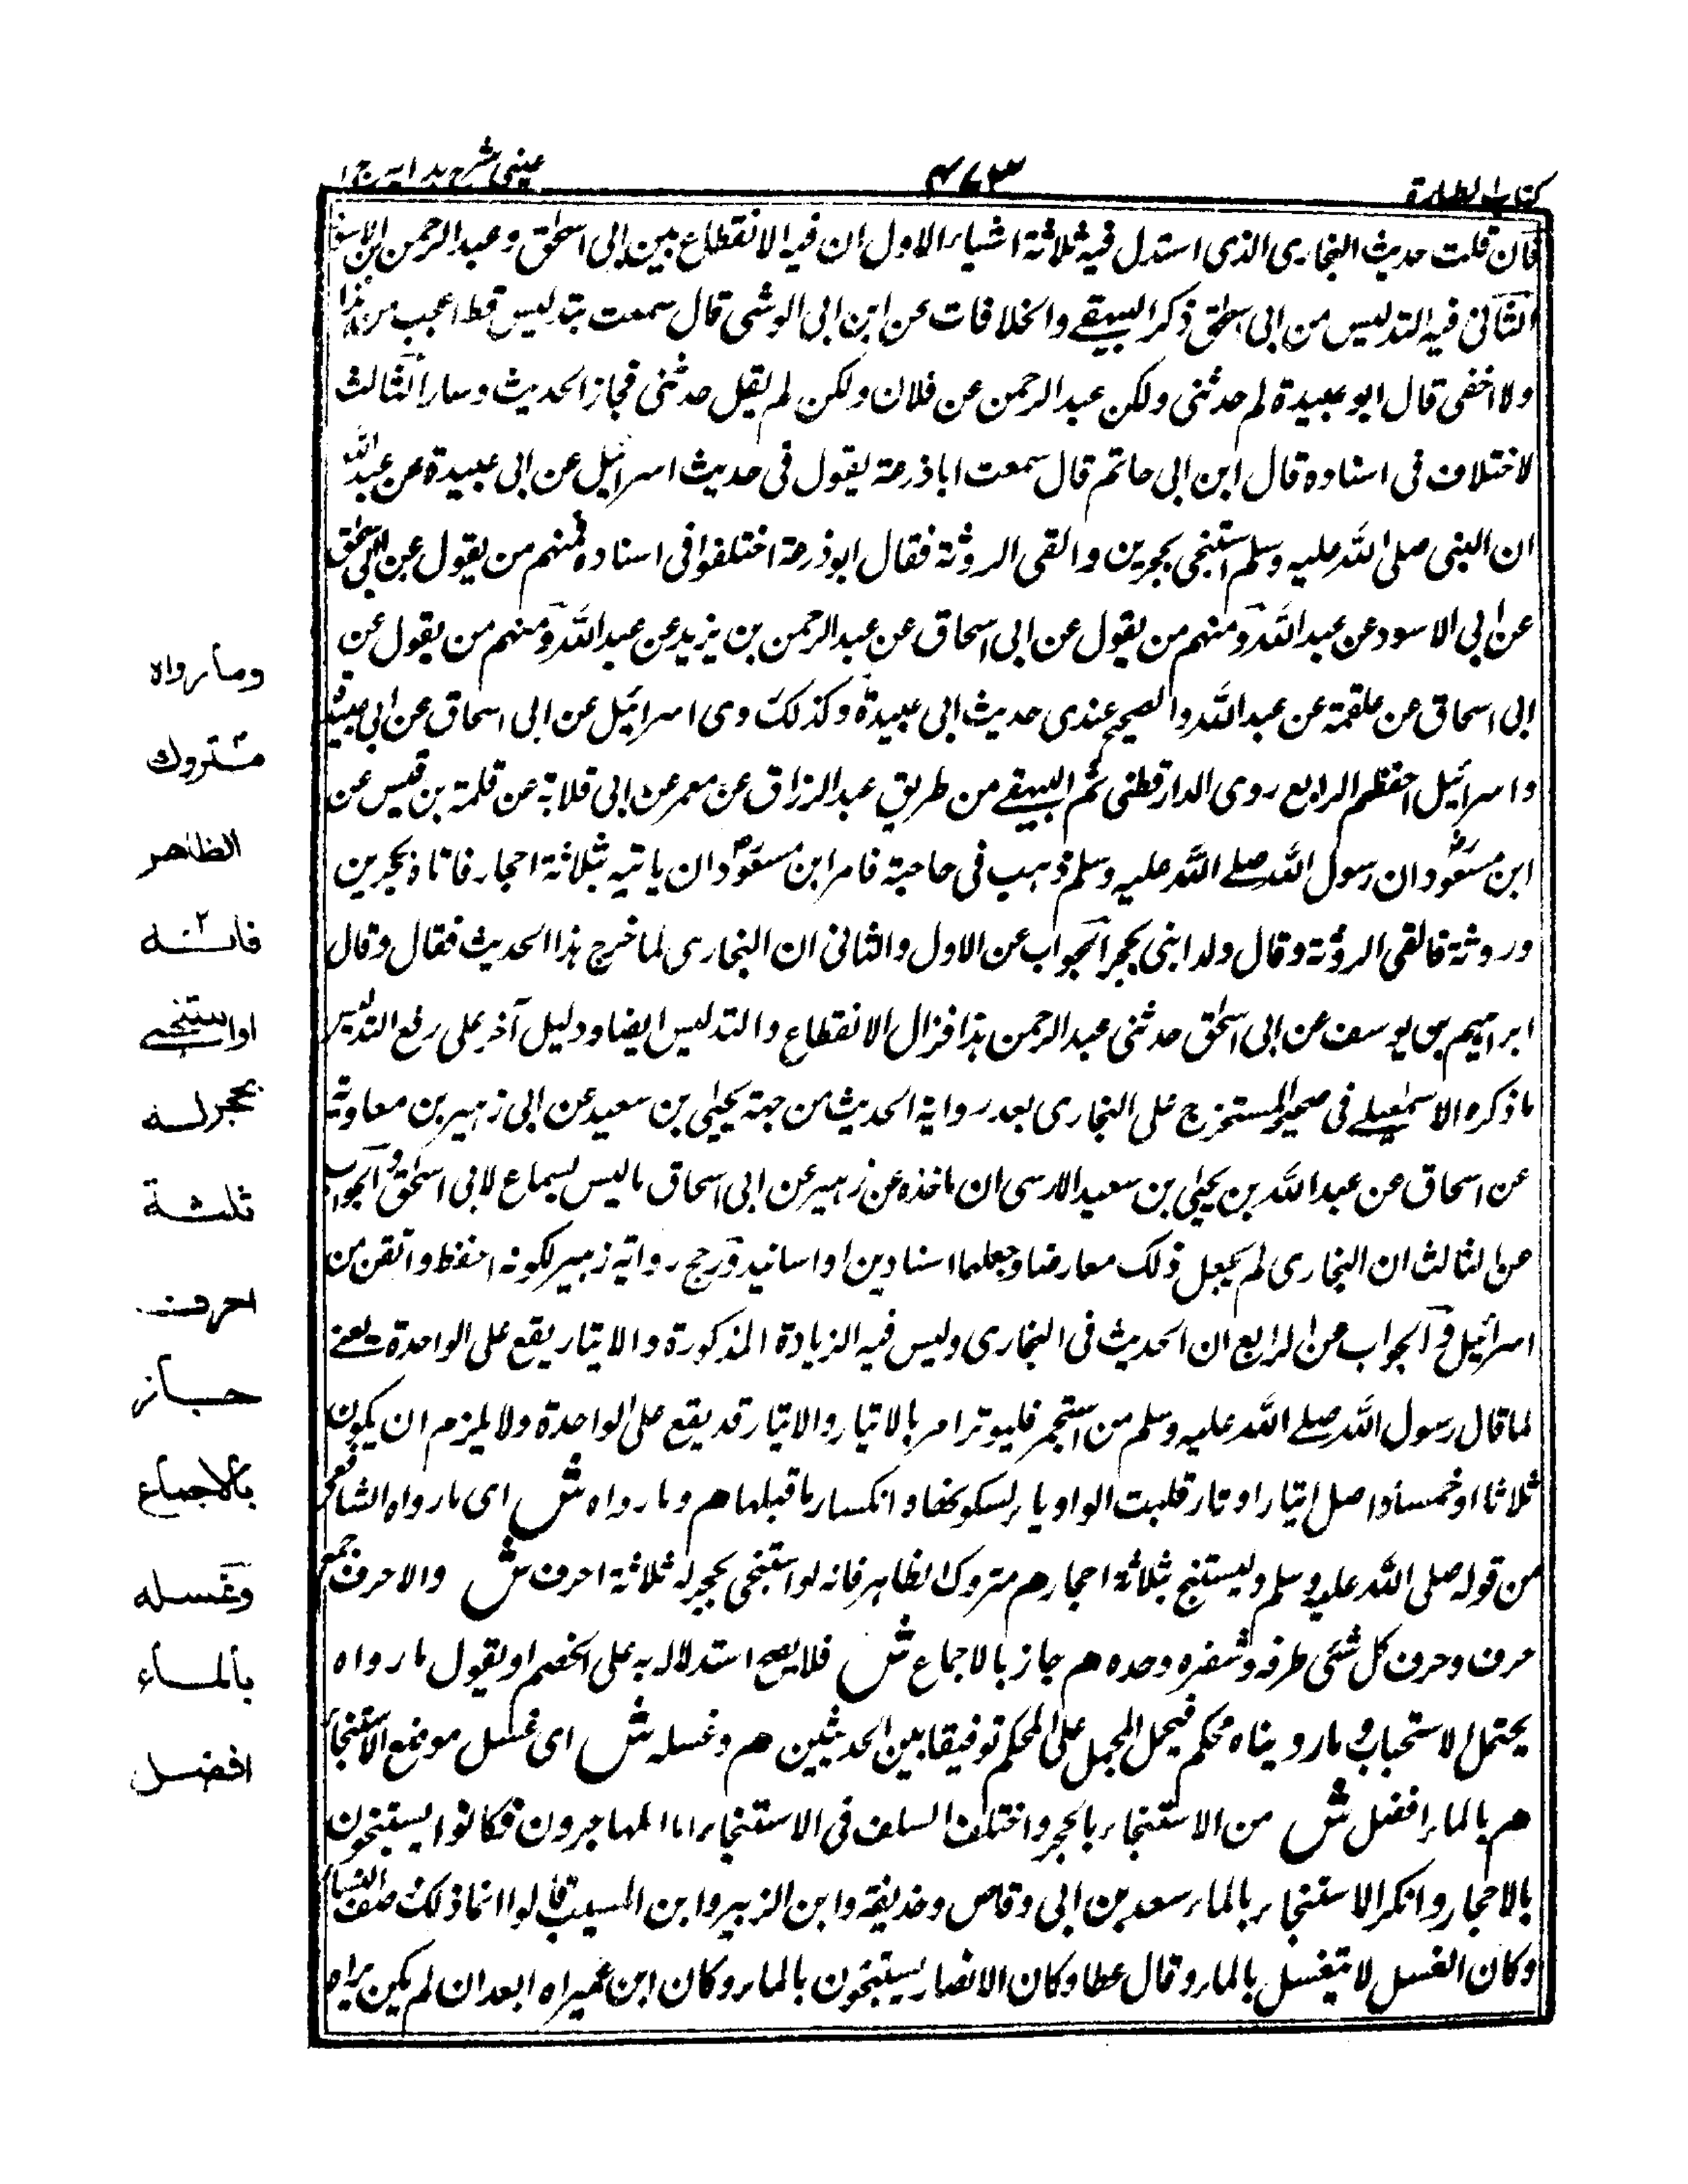 كتاب الطهارة
٤٧٣
عينى شرح هدايه ج ١
فان قلت حديث البخارى الذى استدل فيه ثلاثة اشياء الاول ان فيه الانقطاع بين ابى اسحٰق وعبد الرحمن ابن الاسود
الثانى فيه التدليس من ابى اسحٰق ذكر البيهقے والخلافات عن ابن ابى الوشى قال سمعت بتدليس قط اعجب من هذا
ولا اخفى قال ابو عبيدة لم حدثنى ولكن عبد الرحمن عن فلان ولكن لم يقل حدثنى فجاز الحديث وسار الثالث
لاختلاف فى اسناده قال ابن ابى حاتم قال سمعت اباذرعة يقول فى حديث اسرائيل عن ابى عبيدة عن عبد الله
ان النبى صلى الله عليه وسلم استنجى بحجرين والقى الروثة فقال ابوذرعة اختلفوا فى اسناده فمنهم من يقول عن ابى اسحٰق
عن ابى الاسود عن عبد الله ومنهم من يقول عن ابى اسحاق عن عبد الرحمن بن يزيد عن عبد الله ومنهم من يقول عن
ابى اسحاق عن علقمة عن عبد الله والصحيح عندى حديث ابى عبيدة وكذلك روى اسرائيل عن ابى اسحاق عن ابى عبيدة
واسرائيل احفظهم الرابع روى الدارقطنى ثم البيهقے من طريق عبد الرزاق عن معمر عن ابى قلابة عن قلمة بن قيس عن
ابن مسعود ان رسول الله صلے الله عليه وسلم ذهب فى حاجة فامر ابن مسعود ان ياتيه بثلاثة احجار فاتاه بحجرين
وروثة فالقى الروثة وقال ولد ابنى بحجر الجواب عن الاول والثانى ان البخارى لما خرج هذا الحديث فقال وقال
ابراهيم بن يوسف عن ابى اسحٰق حدثنى عبد الرحمن بذا فزال الانقطاع والتدليس ايضا ودليل آخر على رفع التدليس
ما ذكره الاسمٰعيلے فى صحيح المستخرج على البخارى بعد رواية الحديث من جهة يحيٰى بن سعيد عن ابى زهير بن معاوية
عن اسحاق عن عبد الله بن يحيٰى بن سعيد الارسى ان ماخذه عن زهير عن ابى اسحاق ما ليس بسماع لابى اسحٰق والجواب
عن الثالث ان البخارى لم يجعل ذلك معارضا وجعلهما اسنادين او اسانيد ورجح رواية زهير لكونه احفظ واتقن من
اسرائيل والجواب عن الرابع ان الحديث فى البخارى وليس فيه الزيادة المذكورة والايتار يقع على الواحدة يعنے
لما قال رسول الله صلے الله عليه وسلم من استجمر فليوتر امر بالايتار والايتار قد يقع على الواحدة ولا يلزم ان يكون
ثلاثا او خمسا واصل ايتار اوتار قلبت الواو ياء لسكونها وانكسار ما قبلها م وما رواه ش اى ما رواه الشافعى
من قوله صلى الله عليه وسلم وليستنج بثلاثة احجار م متروك الظاهر فانه لو استنجى بحجر له ثلاثة احرف ش والاحرف جمع
حرف وحرف كل شئى طرفه وشفره وحده م جاز بالاجماع ش فلا يصح استدلاله به على الخصم او يقول ما رواه
يحتمل الاستحباب وما رويناه محكم فيحمل المجمل على المحكم توفيقا بين الحديثين م وغسله ش اى غسل موضع الاستنجاء
م بالماء افضل ش من الاستنجاء بالحجر واختلف السلف فى الاستنجاء اما المهاجرون فكانوا يستنجون
بالاحجار وانكر الاستنجاء بالماء سعد بن ابى وقاص وحذيفة وابن الزبير وابن المسيب قالوا انما ذلك النساء
وكان الغسل لا يتغسل بالماء وقال عطا وكان الانصار يستنجون بالماء وكان ابن عمير اه ابعد ان لم يكن يراه
ومارواه
متروك
الظاهر
فانه
لواستنجے
بحجر له
ثلثة
احرف
جاز
بالاجماع
وغسله
بالماء
افضل